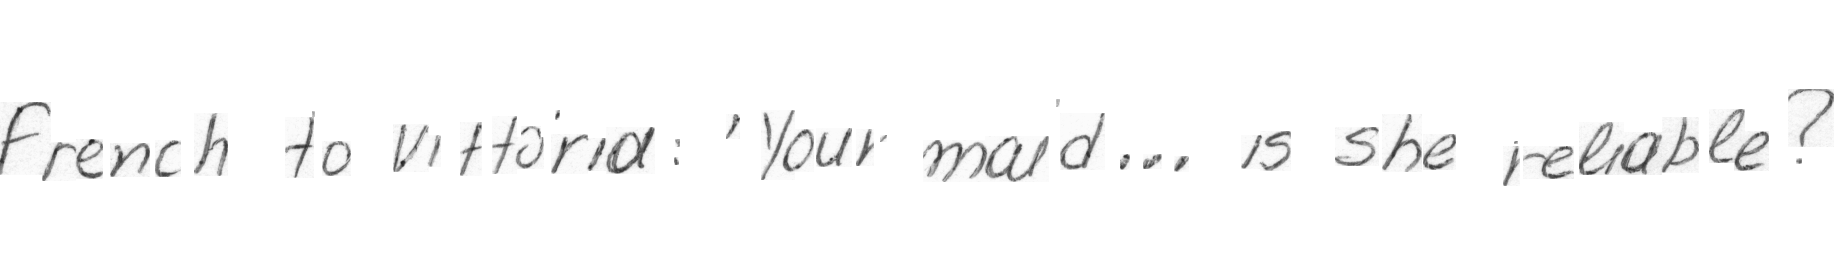 French to Vittoria: 'Your maid... is she reliable?